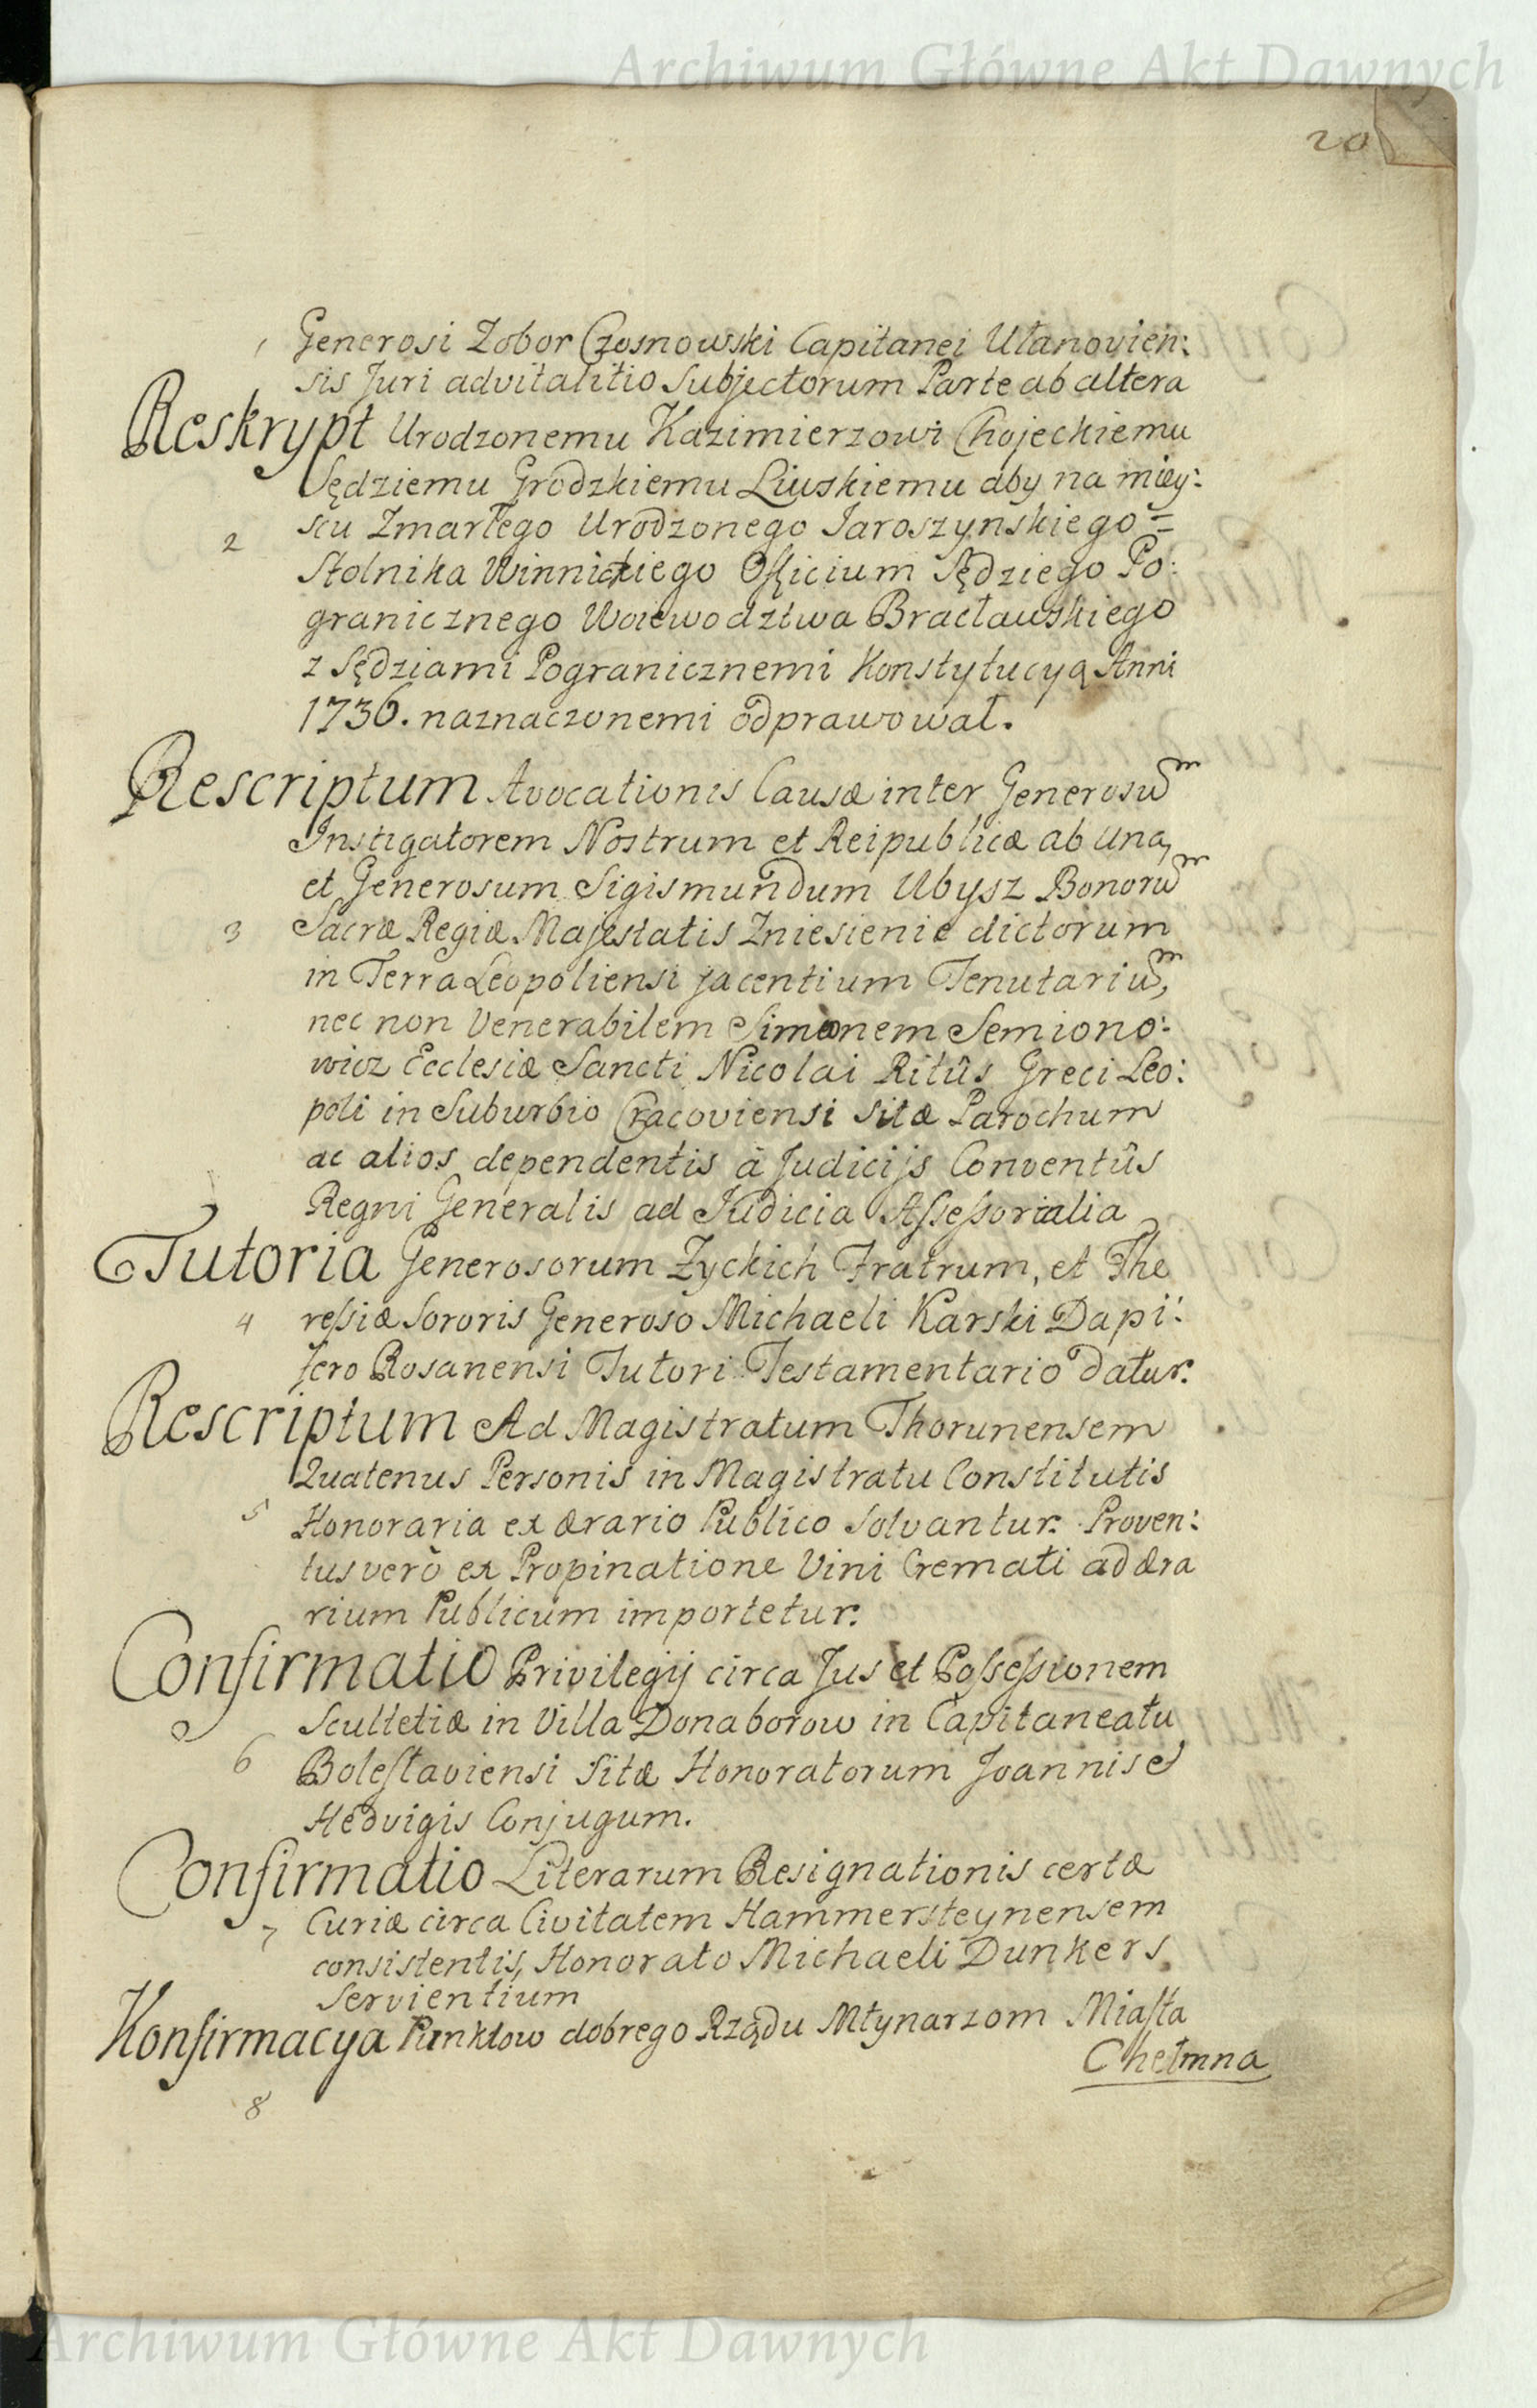 Archiwum Główne Akt Dawnych
20
1 Generosi Zobor Czosnowski Capitanei Ułanovien:
sis Juri advitalitio Subjectorum Parte ab altera
Reskrypt Urodzonemu Kazimierzowi Chojeckiemu
Sędziemu Grodzkiemu Liwskiemu aby na miey:
2 scu Zmarłego Urodzonego Jaroszynskiego =
Stolnika Winnickiego Officium Sędziego Po:
granicznego Woiewodztwa Bracławskiego
z Sędziami Pogranicznemi Konstytucyą Anni
1736. naznaczonemi odprawował.
Rescriptum Avocationis Causæ inter Generosum
Instigatorem Nostrum et Reipublicæ ab una,
et Generosum Sigismundum Ubysz Bonorum
3 Sacræ Regiæ Majestatis Zniesienie dictorum
in Terra Leopoliensi jacentium Tenutarium,
nec non Venerabilem Simeonem Semiono:
wicz Ecclesiæ Sancti Nicolai Ritûs Greci Leo:
poli in Suburbio Cracoviensi sitæ Parochum
ac alios dependentis à Judicijs Conventûs
Regni Generalis ad Judicia Assessorialia
Tutoria Generosorum Zyckich Fratrum, et The
4 ressiæ Sororis Generoso Michaeli Karski Dapi:
fero Rosanensi Tutori Testamentario datur.
Rescriptum Ad Magistratum Thorunensem
Quatenus Personis in Magistratu Constitutis
5 Honoraria ex ærario Publico Solvantur. Proven:
tus verò ex Propinatione Vini Cremati ad æra
rium Publicum importetur.
Confirmatio Privilegij circa Jus et Possessionem
Scultetiæ in Villa Donaborow in Capitaneatu
6 Bolestaviensi Sitæ Honoratorum Joannis et
Hedvigis Conjugum.
Confirmatio Literarum Resignationis certæ
7 Curiæ circa Civitatem Hammersteynensem
consistentis, Honorato Michaeli Dunkers
Servientium
Konfirmacya Punktow dobrego Rządu Młynarzom Miasta
Chełmna
8
Archiwum Główne Akt Dawnych